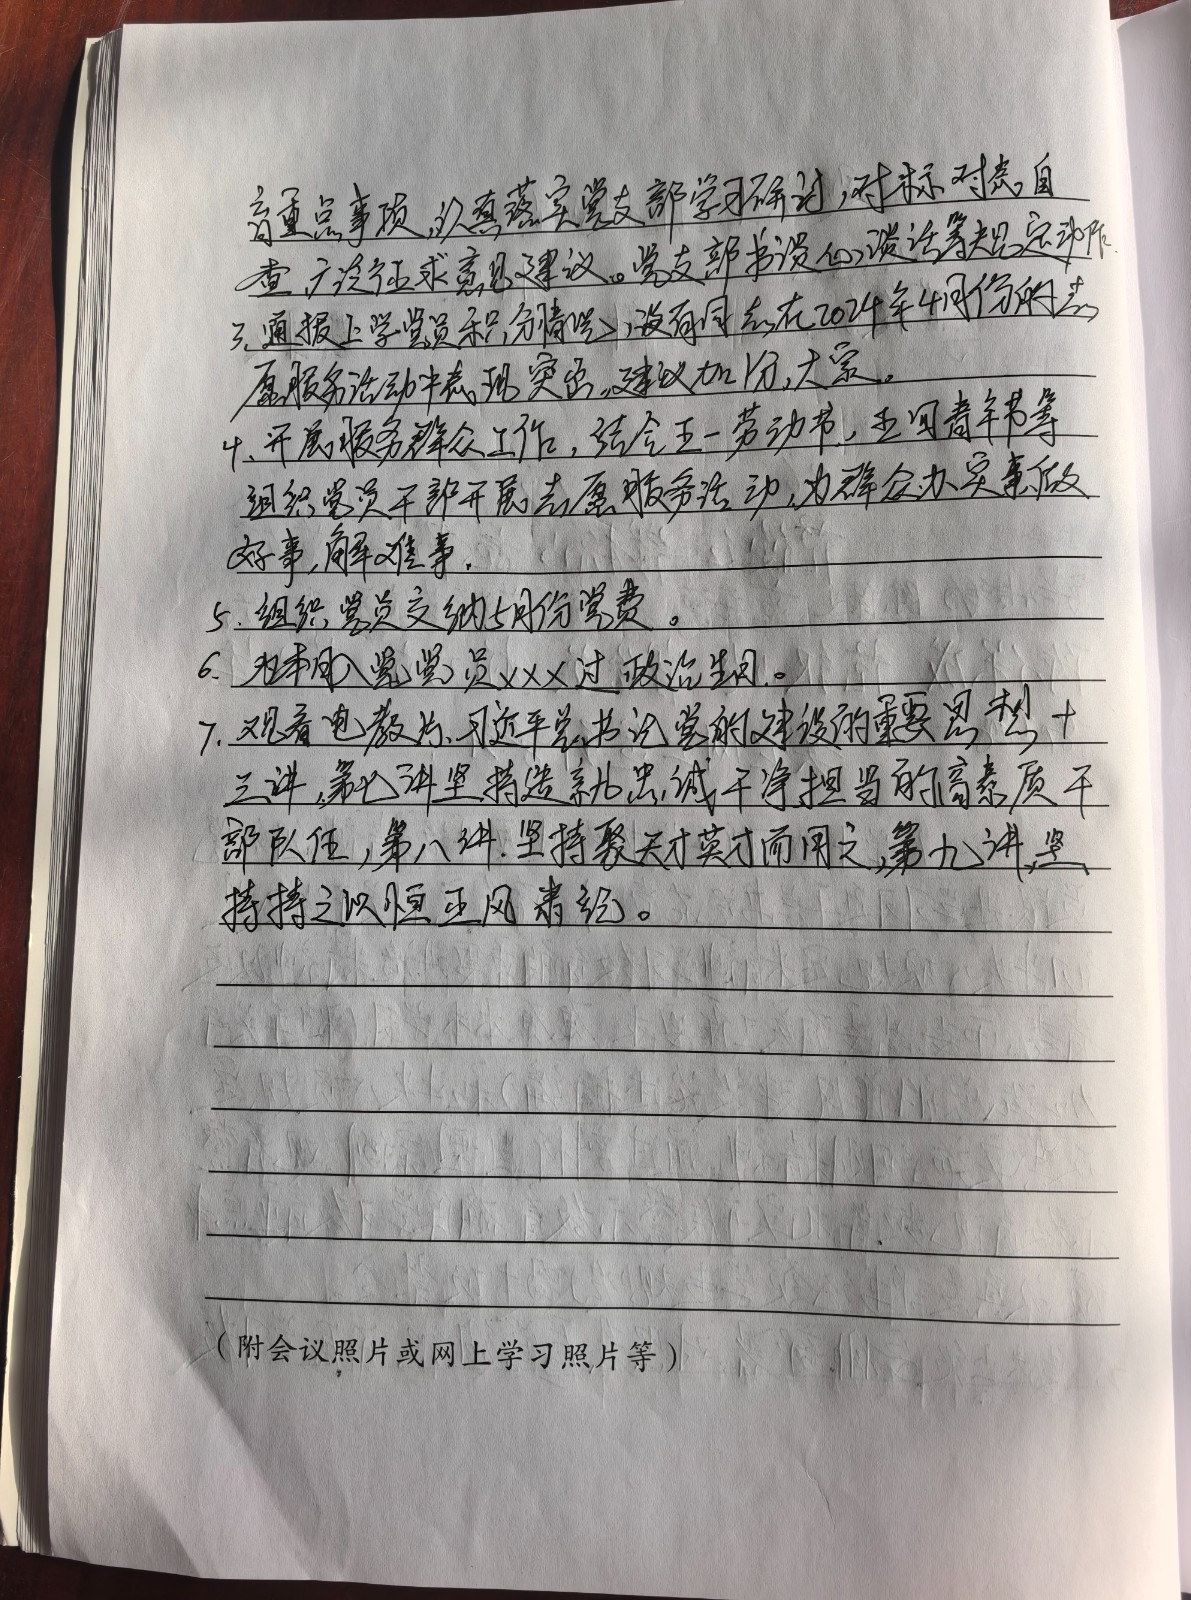 育重点事项,认真落实党支部学习研讨,对标对表自
查,广泛征求意见建议。党支部书谈心谈话等规定动作.
3.通报上学党员积分情况,没有同志在2024年4月份的志
愿服务活动中表现突出,建议加1分,大家。
4、开展服务群众工作,结合五一劳动节,五四青年节等
组织党员干部开展志愿服务活动,为群众办实事做
好事,解难事.
5.组织党员交纳5月份党费。
6. 为本月入党党员×××过政治生日。
7.观看电教片、习近平总书记党的建设的重要思想十
三讲,第七讲坚持造就忠诚干净担当的高素质干
部队伍,第八讲.坚持聚天才英才而用之,第九讲,坚
持持之以恒正风肃纪。
(附会议照片或网上学习照片等)